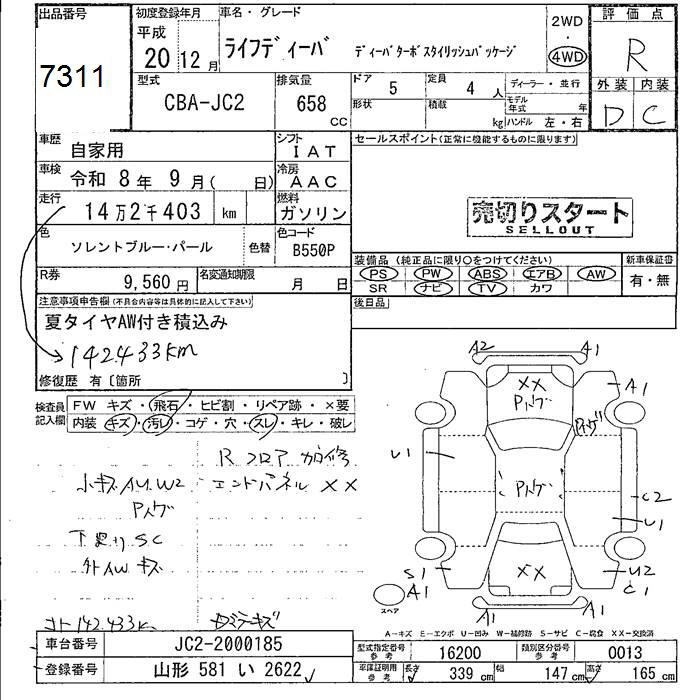 出品番号
7311
初度登録年月
平成
20 12月
車名・グレード
ライフディーバ
ディーバターボスタイリッシュパッケージ
2WD
・
4WD
評価点
R
外装 内装
D C
型式
CBA-JC2
排気量
658
CC
ドア 5
定員 4 人
ディーラー・並行
形状
積載
kg
モデル年式 年
ハンドル 左・右
車歴
自家用
シフト
IAT
車検
令和 8年 9月( 日)
冷房
AAC
走行
14万2千403 km
燃料
ガソリン
色
ソレントブルー・パール
色替
色コード
B550P
R券
9,560 円
名変通知期限
月 日
セールスポイント(正常に機能するものに限ります)
売切りスタート
SELLOUT
装備品(純正品に限り○をつけてください)
PS PW ABS エアB AW
SR ナビ TV カワ
新車保証書
有・無
後日品
注意事項申告欄(不具合内容等は具体的に記入して下さい)
夏タイヤAW付き積込み
142433km
修復歴 有〔箇所 〕
検査員記入欄
FW キズ・飛石・ヒビ割・リペア跡・×要
内装 キズ・汚レ・コゲ・穴・スレ・キレ・破レ
Rフロア 加修
小キズAU.W2 エンドパネル XX
Pハゲ
下廻りSC
外AWキズ
コト142.433km
A2 A1
XX
Pハゲ
A1
Pハゲ
U1
Pハゲ
C2
U1
S1
XX
U2
C1
A1
スペア
A1 A1
A-キズ E-エクボ U-凹み W-補修跡 S-サビ C-腐食 XX-交換済
車台番号
JC2-2000185
登録番号
山形 581 い 2622
型式指定番号
参考
16200
類別区分番号
参考
0013
車庫証明用
参考
長さ 339 cm
幅 147 cm
高さ 165 cm